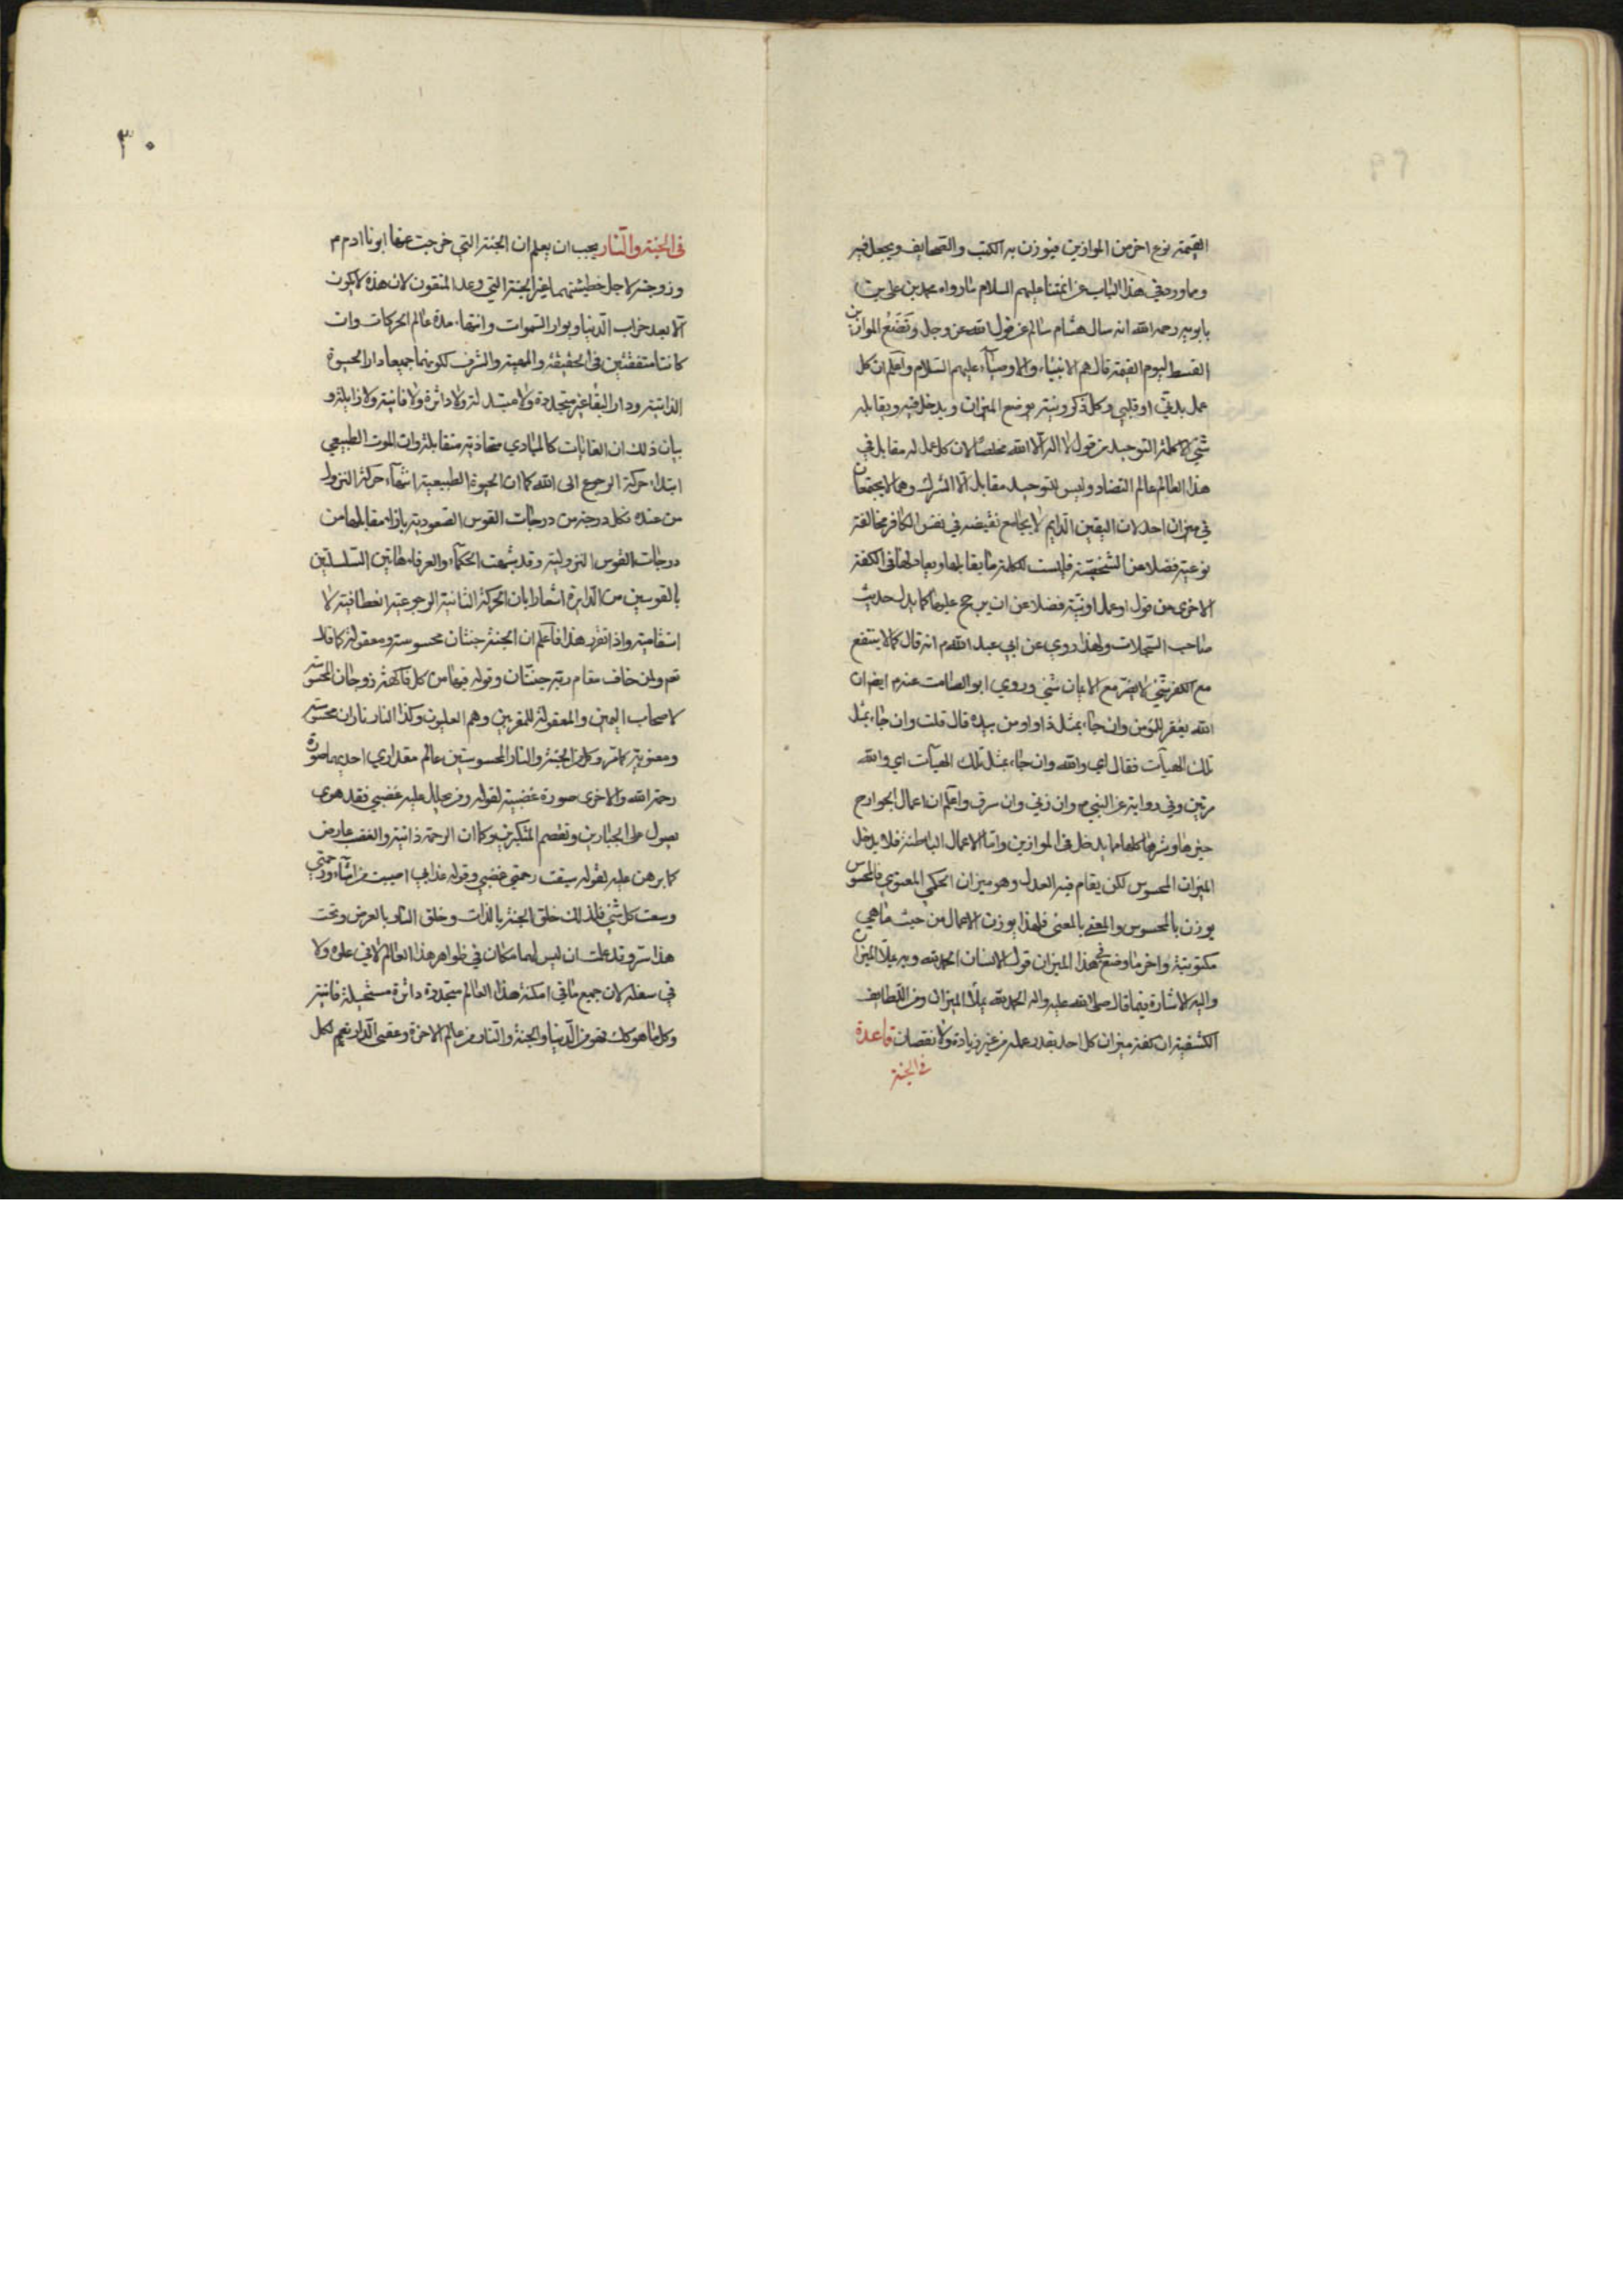 القيمة نوع اخر من الموازين فيوزن به الكتب والصحايف ويجعل فيه
ومما ورد في هذا الباب عن ائمتنا عليهم السلام ما رواه محمد بن علي بن
بابويه رحمه الله انه سال هشام سالم عن قول الله عز وجل وَنَضَعُ الموازين
القسط ليوم القيمة قال هم الانبياء والاوصياء عليهم السلام واعلم ان كل
عمل بدني او قلبي وكل ذكر ونية يوضع الميزان ويدخل فيه ويقابله
شئ الا كلمة التوحيد من قول لا اله الا الله مخلصا لان كل عمل له مقابل في
هذا العالم عالم التضاد وليس للتوحيد مقابل الا الشرك وهما لا يجتمعان
في ميزان احد لان اليقين الدايم لا يجامع نقيضه في نفس الكافر مخالفة
نوعية فضلا عن الشخصية فليست لكلمة ما يقابلها ويعادلها في الكفة
الاخرى من قول او عمل او نية فضلا عن ان يرجح عليها كما يدل حديث
صاحب السجلات ولهذا روي عن ابي عبد الله م انه قال كما لا ينتفع
مع الكفر شئ لا يضر مع الايمان شئ وروي ابو الصامت عنه م ايضا ان
الله يغفر للمؤمن وان جاء بمثل ذا واومن بيده قال قلت وان جاء بمثل
تلك الهيآت فقال اي والله وان جاء بمثل تلك الهيآت اي والله
مرتين وفي رواية عن النبي ص وان زنى وان سرق واعلم ان اعمال الجوارح
خيرها وشرها كلها مما يدخل في الموازين واما الاعمال الباطنة فلا يدخل
الميزان المحسوس لكن يقام فيه العدل وهو ميزان الحكمي المعنوي فالمحسوس
يوزن بالمحسوس والمعنى بالمعنى فلهذا يوزن الاعمال من حيث ما هي
مكتوبة واخر ما وضع في هذا الميزان قول الانسان الحمد لله وبه يملأ الميزان
واليه الاشارة فيما قال صلى الله عليه واله الحمد لله يملأ الميزان ومن اللطايف
الكشفية ان كفة ميزان كل احد بقدر عمله من غير زيادة ولا نقصان قاعدة
في الجنة
٣٠
في الجنة والنار يجب ان يعلم ان الجنة التي خرجت عنها ابونا ادم م
وزوجته لاجل خطيئتهما غير الجنة التي وعد المتقون لان هذه لا يكون
الا بعد خراب الدنيا وبوار السموات وانتهاء مدة عالم الحركات وان
كانتا متفقتين في الحقيقة والمعية والشرف لكونهما جميعا دار الحيوة
الذاتية ودار البقاء غير متجددة ولا متبدلة ولا داثرة ولا فانية ولا زايلة و
بيان ذلك ان الغايات كالمبادي محاذية متقابلة وان الموت الطبيعي
ابتداء حركة الرجوع الى الله كما ان الحيوة الطبيعية انتهاء حركة النزول
من عنده فكل درجة من درجات القوس الصعودية بازاء مقابلها من
درجات القوس النزولية وقد شبهت الحكماء والعرفاء هاتين السلسلتين
بالقوسين من الدايرة اشعارا بان الحركة الثانية الرجوعية انعطافية لا
استقامية واذا تقرر هذا فاعلم ان الجنة جنتان محسوسة ومعقولة كما قال
تعم ولمن خاف مقام ربه جنتان وقوله فيهما من كل فاكهة زوجان المحسوسة
لاصحاب اليمين والمعقولة للمقربين وهم العليون وكذا النار ناران محسوسة
ومعنوية كما مر وكل من الجنة والنار المحسوستين عالم مقداري احديهما صورة
رحمة الله والاخرى صورة غضبه لقوله ومن يحلل عليه غضبي فقد هوى
يصول على الجبارين وتقصم المتكبرين وكما ان الرحمة ذاتية والغضب عارض
كما برهن عليه لقوله سبقت رحمتي غضبي وقوله عذابي اصيب من اشاء ورحمتي
وسعت كل شئ فلذلك خلق الجنة بالذات وخلق النار بالعرض وتحت
هذا سر وقد علمت ان ليس لهما مكان في ظواهر هذا العالم لا في علوه ولا
في سفله لان جميع ما في امكنة هذا العالم متجددة داثرة مستحيلة فانية
وكل ما هو كك فهو من الدنيا والجنة والنار من عالم الاخرة وعقبى الدار نعم لكل